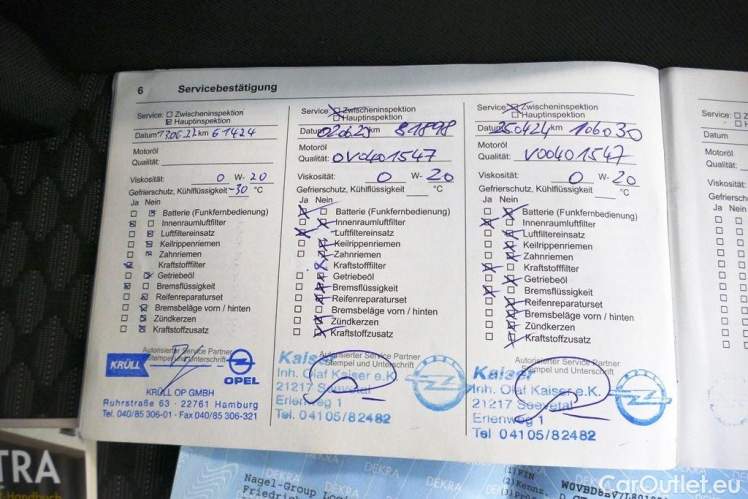 6 Servicebestätigung
Service: Zwischeninspektion
Hauptinspektion
Datum 13.06.22 km 61424
Motoröl
Qualität:
Viskosität: 0 W- 20
Gefrierschutz, Kühlflüssigkeit -30 °C
Ja Nein
Batterie (Funkfernbedienung)
Innenraumluftfilter
Luftfiltereinsatz
Keilrippenriemen
Zahnriemen
Kraftstofffilter
Getriebeöl
Bremsflüssigkeit
Reifenreparaturset
Bremsbeläge vorn / hinten
Zündkerzen
Kraftstoffzusatz
Autorisierter Service Partner
Stempel und Unterschrift
KRÜLL
OPEL
KRÜLL OP GMBH
Ruhrstraße 63 · 22761 Hamburg
Tel. 040/85 306-01 · Fax 040/85 306-321
Service: Zwischeninspektion
Hauptinspektion
Datum 02.06.23 km 81898
Motoröl
Qualität: OV0401547
Viskosität: 0 W- 20
Gefrierschutz, Kühlflüssigkeit °C
Ja Nein
Batterie (Funkfernbedienung)
Innenraumluftfilter
Luftfiltereinsatz
Keilrippenriemen
Zahnriemen
Kraftstofffilter
Getriebeöl
Bremsflüssigkeit
Reifenreparaturset
Bremsbeläge vorn / hinten
Zündkerzen
Kraftstoffzusatz
Autorisierter Service Partner
Stempel und Unterschrift
Kaiser
Inh. Olaf Kaiser e.K.
21217 Seevetal
Erlenweg 1
Tel. 04105/82482
Service: Zwischeninspektion
Hauptinspektion
Datum 25.04.24 km 106030
Motoröl
Qualität: V00401547
Viskosität: 0 W- 20
Gefrierschutz, Kühlflüssigkeit °C
Ja Nein
Batterie (Funkfernbedienung)
Innenraumluftfilter
Luftfiltereinsatz
Keilrippenriemen
Zahnriemen
Kraftstofffilter
Getriebeöl
Bremsflüssigkeit
Reifenreparaturset
Bremsbeläge vorn / hinten
Zündkerzen
Kraftstoffzusatz
Autorisierter Service Partner
Stempel und Unterschrift
Kaiser
Inh. Olaf Kaiser e.K.
21217 Seevetal
Erlenweg 1
Tel 04105/82482
Service:
Datum
Motoröl
Qualität:
Viskosität:
Gefrierschutz
Ja Nein
TRA
-Handbuch
DEKRA
Nagel-Group
Friedrich
(1) FIN
(2) Kennz.
CarOutlet.eu